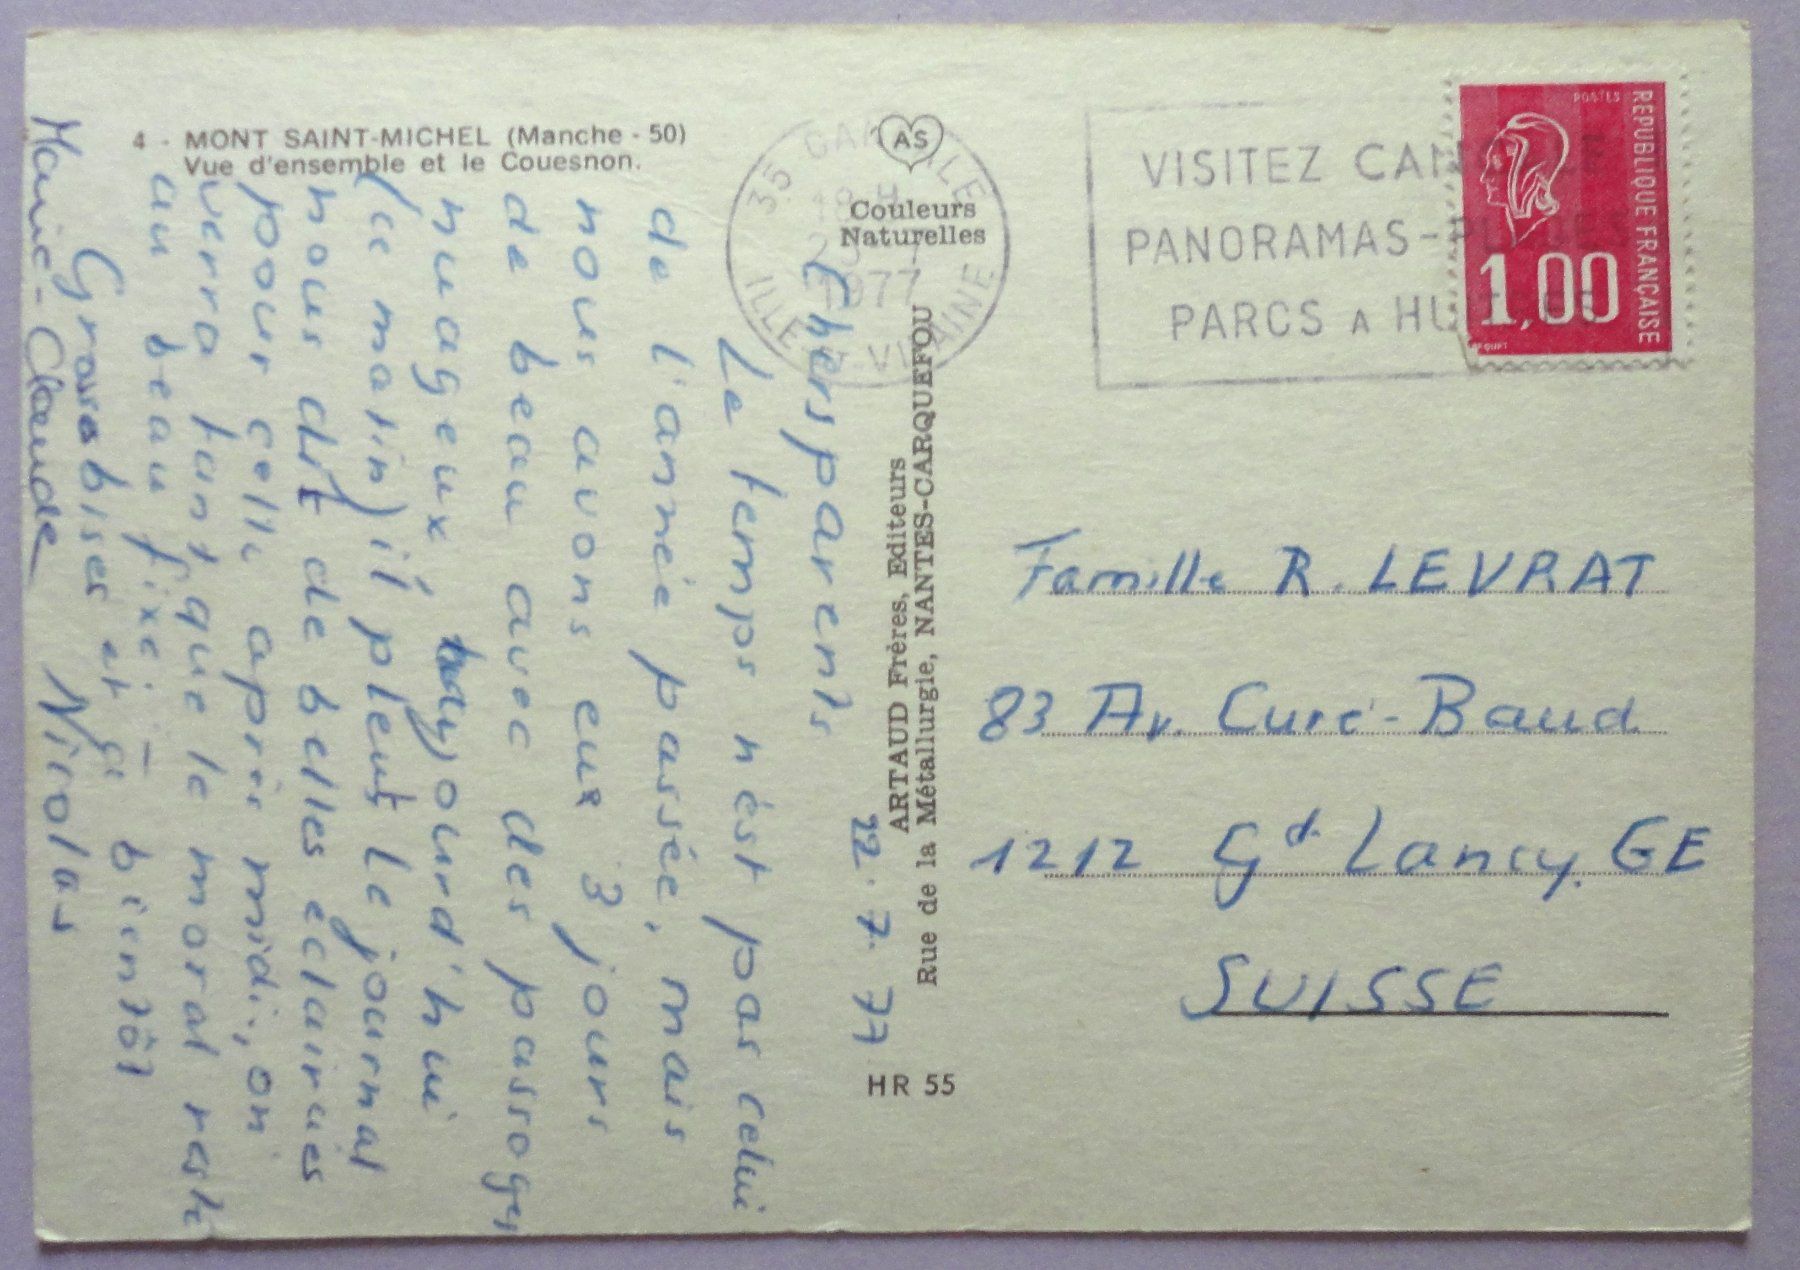 4 - MONT SAINT-MICHEL (Manche - 50)
Vue d'ensemble et le Couesnon.
AS
Couleurs
Naturelles
35 CANCALE
18 H
1977
ILLE-ET-VILAINE
VISITEZ CANCALE
PANORAMAS-PLAGES
PARCS A HUITRES
POSTES
REPUBLIQUE FRANÇAISE
1,00
ARTAUD Frères, Editeurs
Rue de la Métallurgie, NANTES-CARQUEFOU
HR 55
22.7.77
Chers parents
Le temps n'est pas celui
de l'année passée, mais
nous avons eux 3 jours
de beau avec des passages
nuageux, aujourd'hui
(ce matin) il pleut le journal
nous dit de belles éclaircies
pour cette après midi, on
verra tant que le moral reste
au beau fixe! –
Grosses bises et à bientôt
Marie-Claude Nicolas
Famille R. LEVRAT
83 Av. Curé-Baud
1212 Gd Lancy. GE
SUISSE